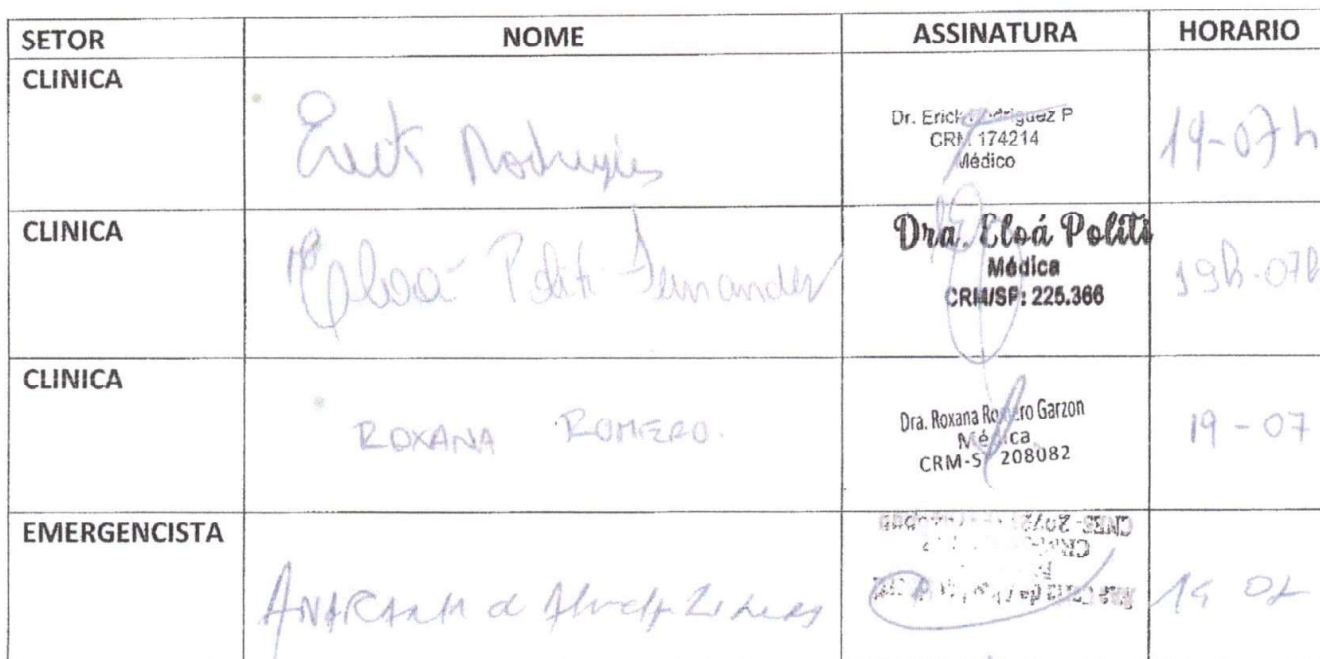 SETOR NOME ASSINATURA HORARIO
CLINICA
Erick Rodrigues
Dr. Erick Rodriguez P
CRM 174214
Médico
19-07 h
CLINICA
Eloá Politi Fernandes
Dra. Eloá Politi
Médica
CRM/SP: 225.366
19h-07h
CLINICA
ROXANA ROMERO.
Dra. Roxana Romero Garzon
Médica
CRM-SP 208082
19-07
EMERGENCISTA